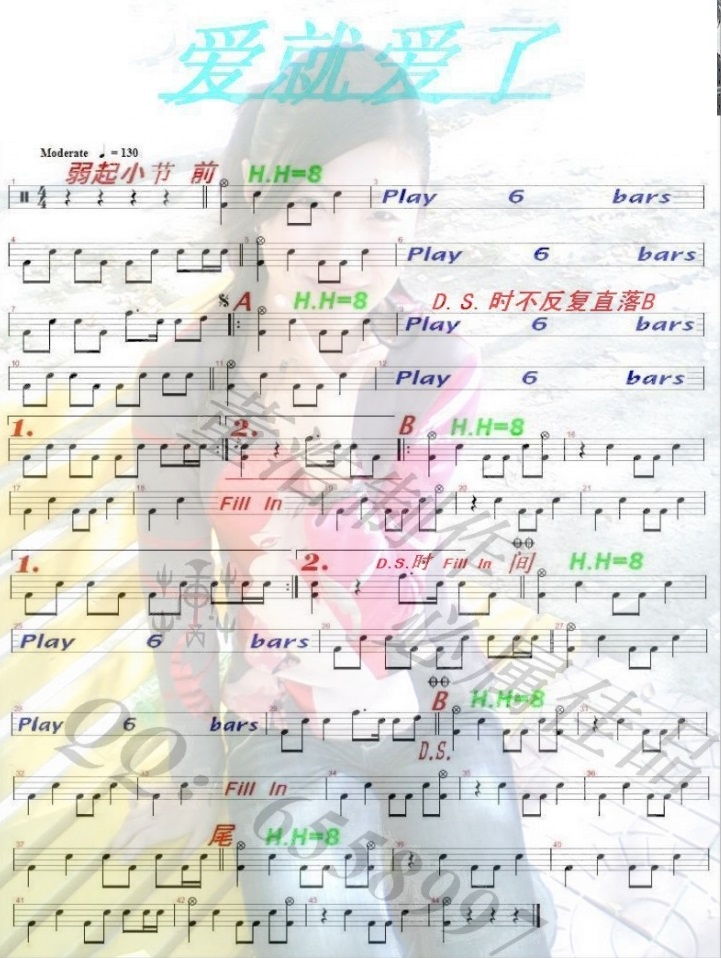 爱就爱了
Moderate ♩ = 130
弱起小节 前 H.H=8
1 Play 6 bars
4 5 6 Play 6 bars
𝄋 A H.H=8 D.S.时不反复直落B
7 Play 6 bars
10 11 12 Play 6 bars
1. 2. B H.H=8
16
17 18 Fill In
1. 2. D.S.时 Fill In 间 H.H=8
25 Play 6 bars 26 27
B H.H=8
Play 6 bars 31
D.S.
32 33 Fill In 34 35 36
尾 H.H=8
37 40
41 42 43 44
董浩制作 必属佳品
QQ: 6558997